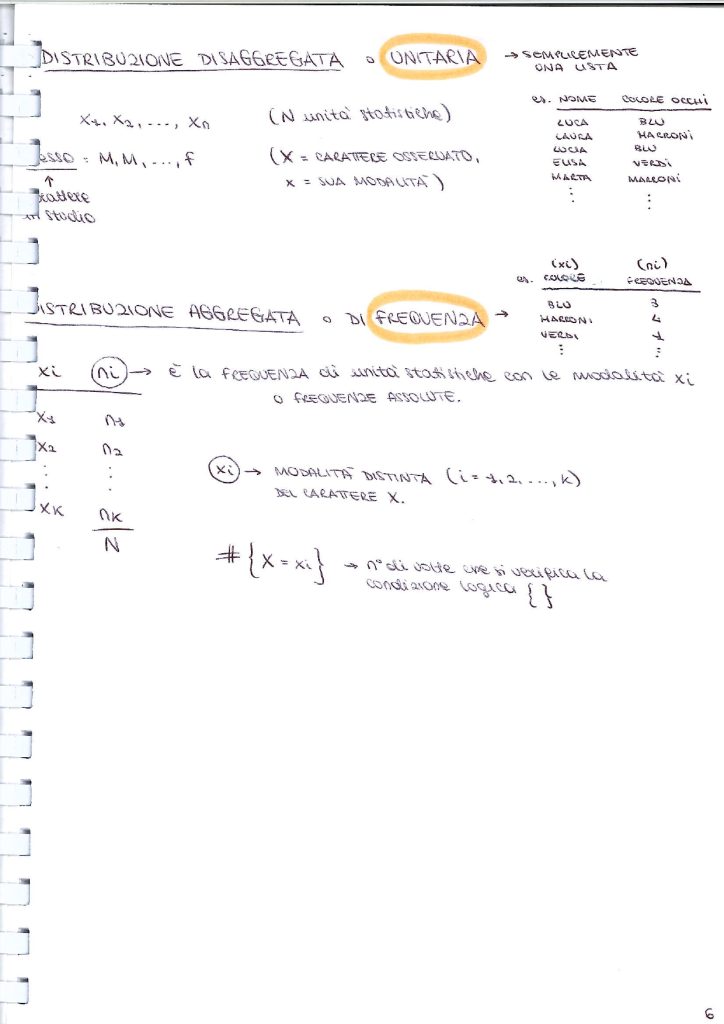 DISTRIBUZIONE DISAGGREGATA o UNITARIA → SEMPLICEMENTE
UNA LISTA
x1, x2, ..., xn (N unità statistiche)
ESSO : M, M, ..., f (X = CARATTERE OSSERVATO,
x = SUA MODALITÀ)
↑
carattere
in studio
es. NOME COLORE OCCHI
LUCA BLU
LAURA MARRONI
LUCIA BLU
ELISA VERDI
MARTA MARRONI
⋮ ⋮
DISTRIBUZIONE AGGREGATA o DI FREQUENZA →
(xi) (ni)
es. COLORE FREQUENZA
BLU 3
MARRONI 4
VERDI 1
⋮ ⋮
xi ni → è la FREQUENZA di unità statistiche con le modalità xi
o FREQUENZE ASSOLUTE.
x1 n1
x2 n2
⋮ ⋮
xK nK
N
xi → MODALITÀ DISTINTA (i = 1, 2, ..., K)
DEL CARATTERE X.
# {X = xi} → n° di volte che si verifica la
condizione logica { }
6